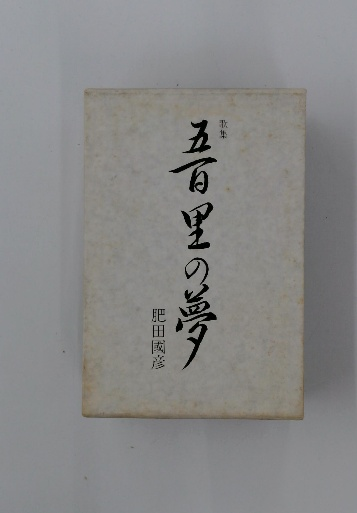 歌集
五百里の夢
肥田國彦